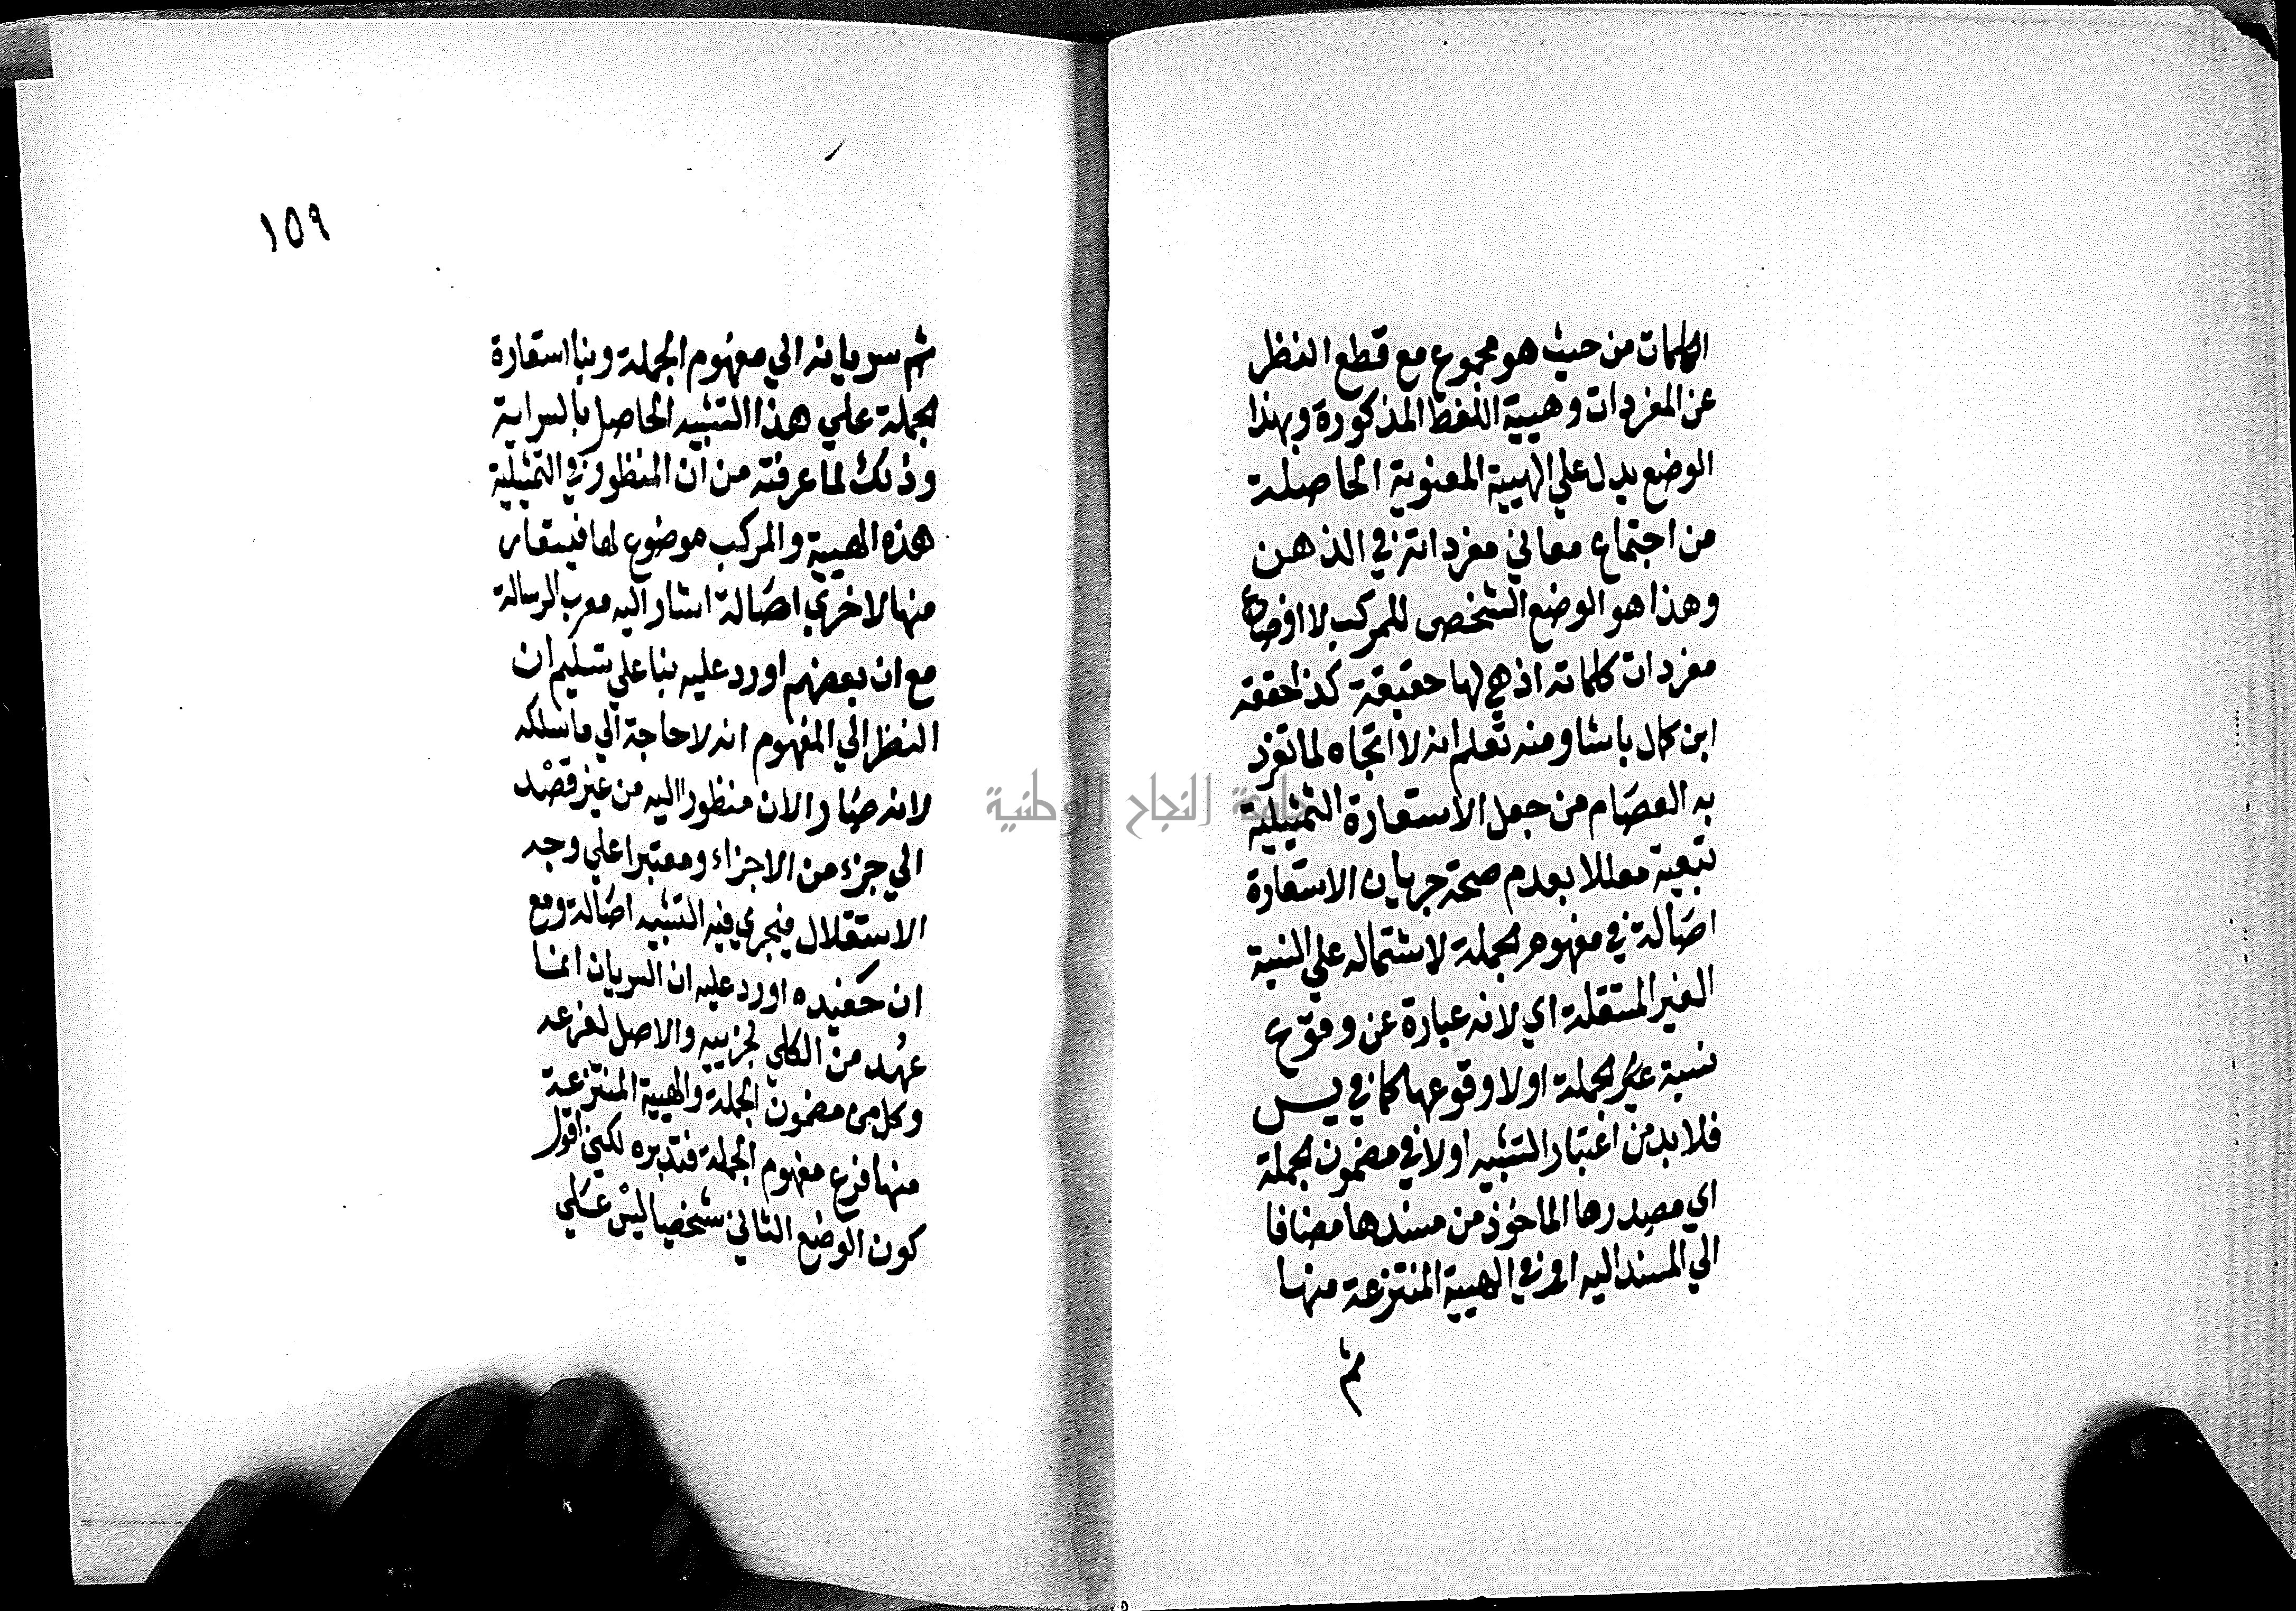 الكلمات من حيث هو مجموع مع قطع النظر
عن المفردات وهيية اللفظ المذكورة وبهذا
الوضع يدل علي الهيية المعنوية الحاصلة
من اجتماع معاني مفرداته في الذهن
وهذا هو الوضع الشخصى للمركب لا اوضاع
مفردات كلماته اذ هي لها حقيقة كذا حققه
ابن كمال باشا ومنه تعلم انه لا اتجاه لما تفرد
به العصام من جعل الاستعارة التمثيلية
تبعية معللا بعدم صحة جريان الاستعارة
اصالة في مفهوم الجملة لاشتماله علي النسبة
الغير المستقلة اي لانه عبارة عن وقوع
نسبة الجملة او لا وقوعها كما في يس
فلا بد من اعتبار التشبيه اولا في مضمون الجملة
اي مصدرها الماخوذ من مسندها مضافا
الي المسند اليه او في الهيية المنتزعة منها
ثم
١٥٩
ثم سريانه الي مفهوم الجملة وبنا استعارة
الجملة علي هذا التشبيه الحاصل بالسراية
وذلك لما عرفته من ان المنظور في التمثيلية
هذه الهيية والمركب موضوع لها فيستعار
منها لاخري اصالة اشار اليه معرب الرسالة
مع ان بعضهم اورد عليه بنا علي تسليم ان
النظر الي المفهوم انه لا حاجة الي ما سلكه
لانه صار الان منظورا اليه من غير قصد
الي جزء من الاجزاء ومعتبرا علي وجه
الاستقلال فيجري فيه التشبيه اصالة ومع
ان حفيده اورد عليه ان السريان انما
عهد من الكلي لجزييه والاصل لفرعه
وكل من مضمون الجملة والهيية المنتزعة
منها فرع مفهوم الجملة فتدبره لكني اقول
كون الوضع الثاني شخصيا ليس علي
جامعة النجاح الوطنية